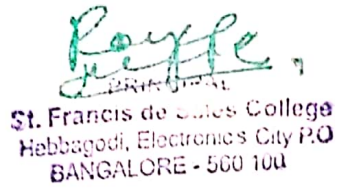 PRINCIPAL
St. Francis de Sales College
Hebbagodi, Electronics City P.O
BANGALORE - 560 100